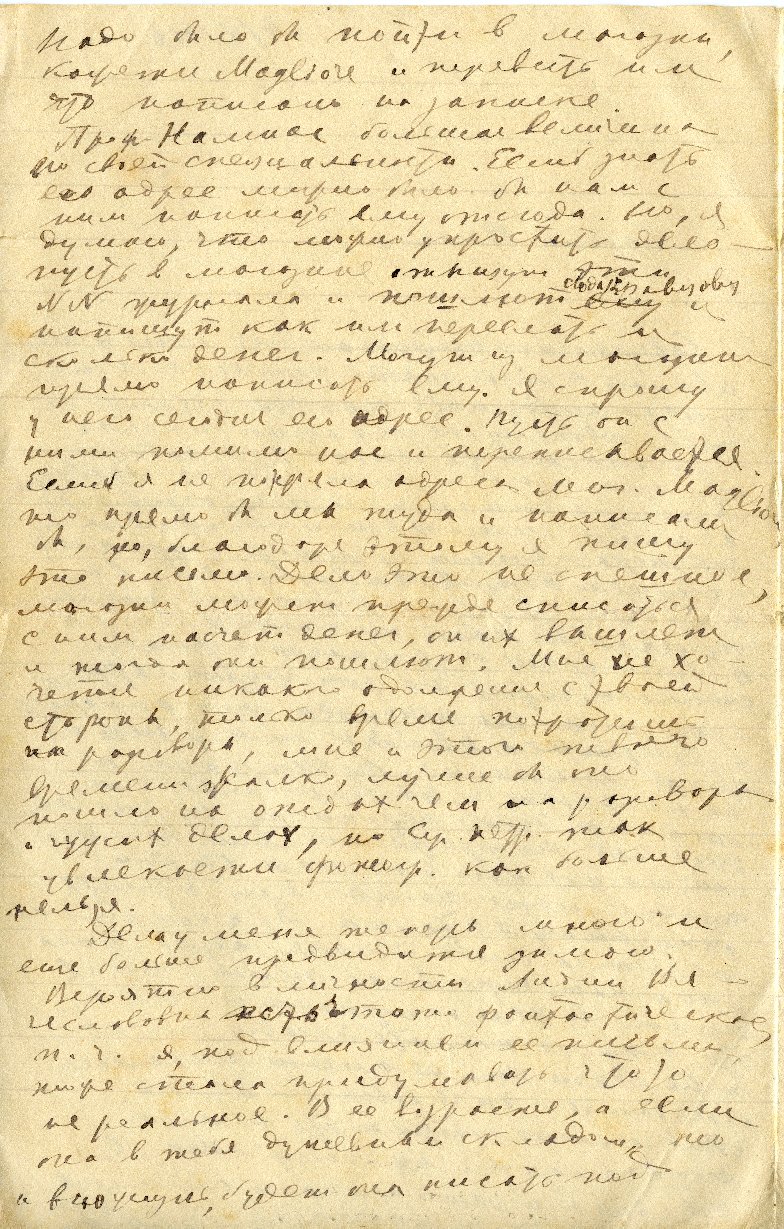 Надо было бы пойти в магазин,
кажется Magliore и перевесть им
что написано на записке.
Проф Намиас большая величина
по своей специальности. Если б знать
его адрес можно было бы нам с
ним написать ему отсюда. Но, я
думаю, что можно упростить дело —
пусть в магазине отыщут эти
NN журнала и пошлют ему и
напишут как им переслать и
сколько денег. Могут из магазина
прямо написать ему. Я спрошу
у него сегодня его адрес. Пусть он с
ними помимо нас и переписывается.
Если б я не потеряла адреса маг.
то прямо бы туда и написали
бы, но, благодаря этому я пишу
это письмо. Дело это не спешное,
магазин может прежде списаться
с ним насчет денег, он их вышлет
и тогда они пошлют. Мне не хо-
чется никакого одолжения с твоей
стороны, только время потратишь
на разговоры, мне и этого твоего
времени жалко, лучше бы оно
пошло на отдых чем на разговоры
о чужих делах, но Ср. так
увлекается как больше
нельзя.
Дела у меня теперь много и
еще больше предвидится зимою.
Вероятно в личности Лидии Вя-
чеславовны есть что то фантастическое,
п. ч. я, под влиянием ее письма,
тоже стала придумывать что то
не реальное. В ее возрасте, а если
она в тебя душевным складом, то
и в будет она писать под